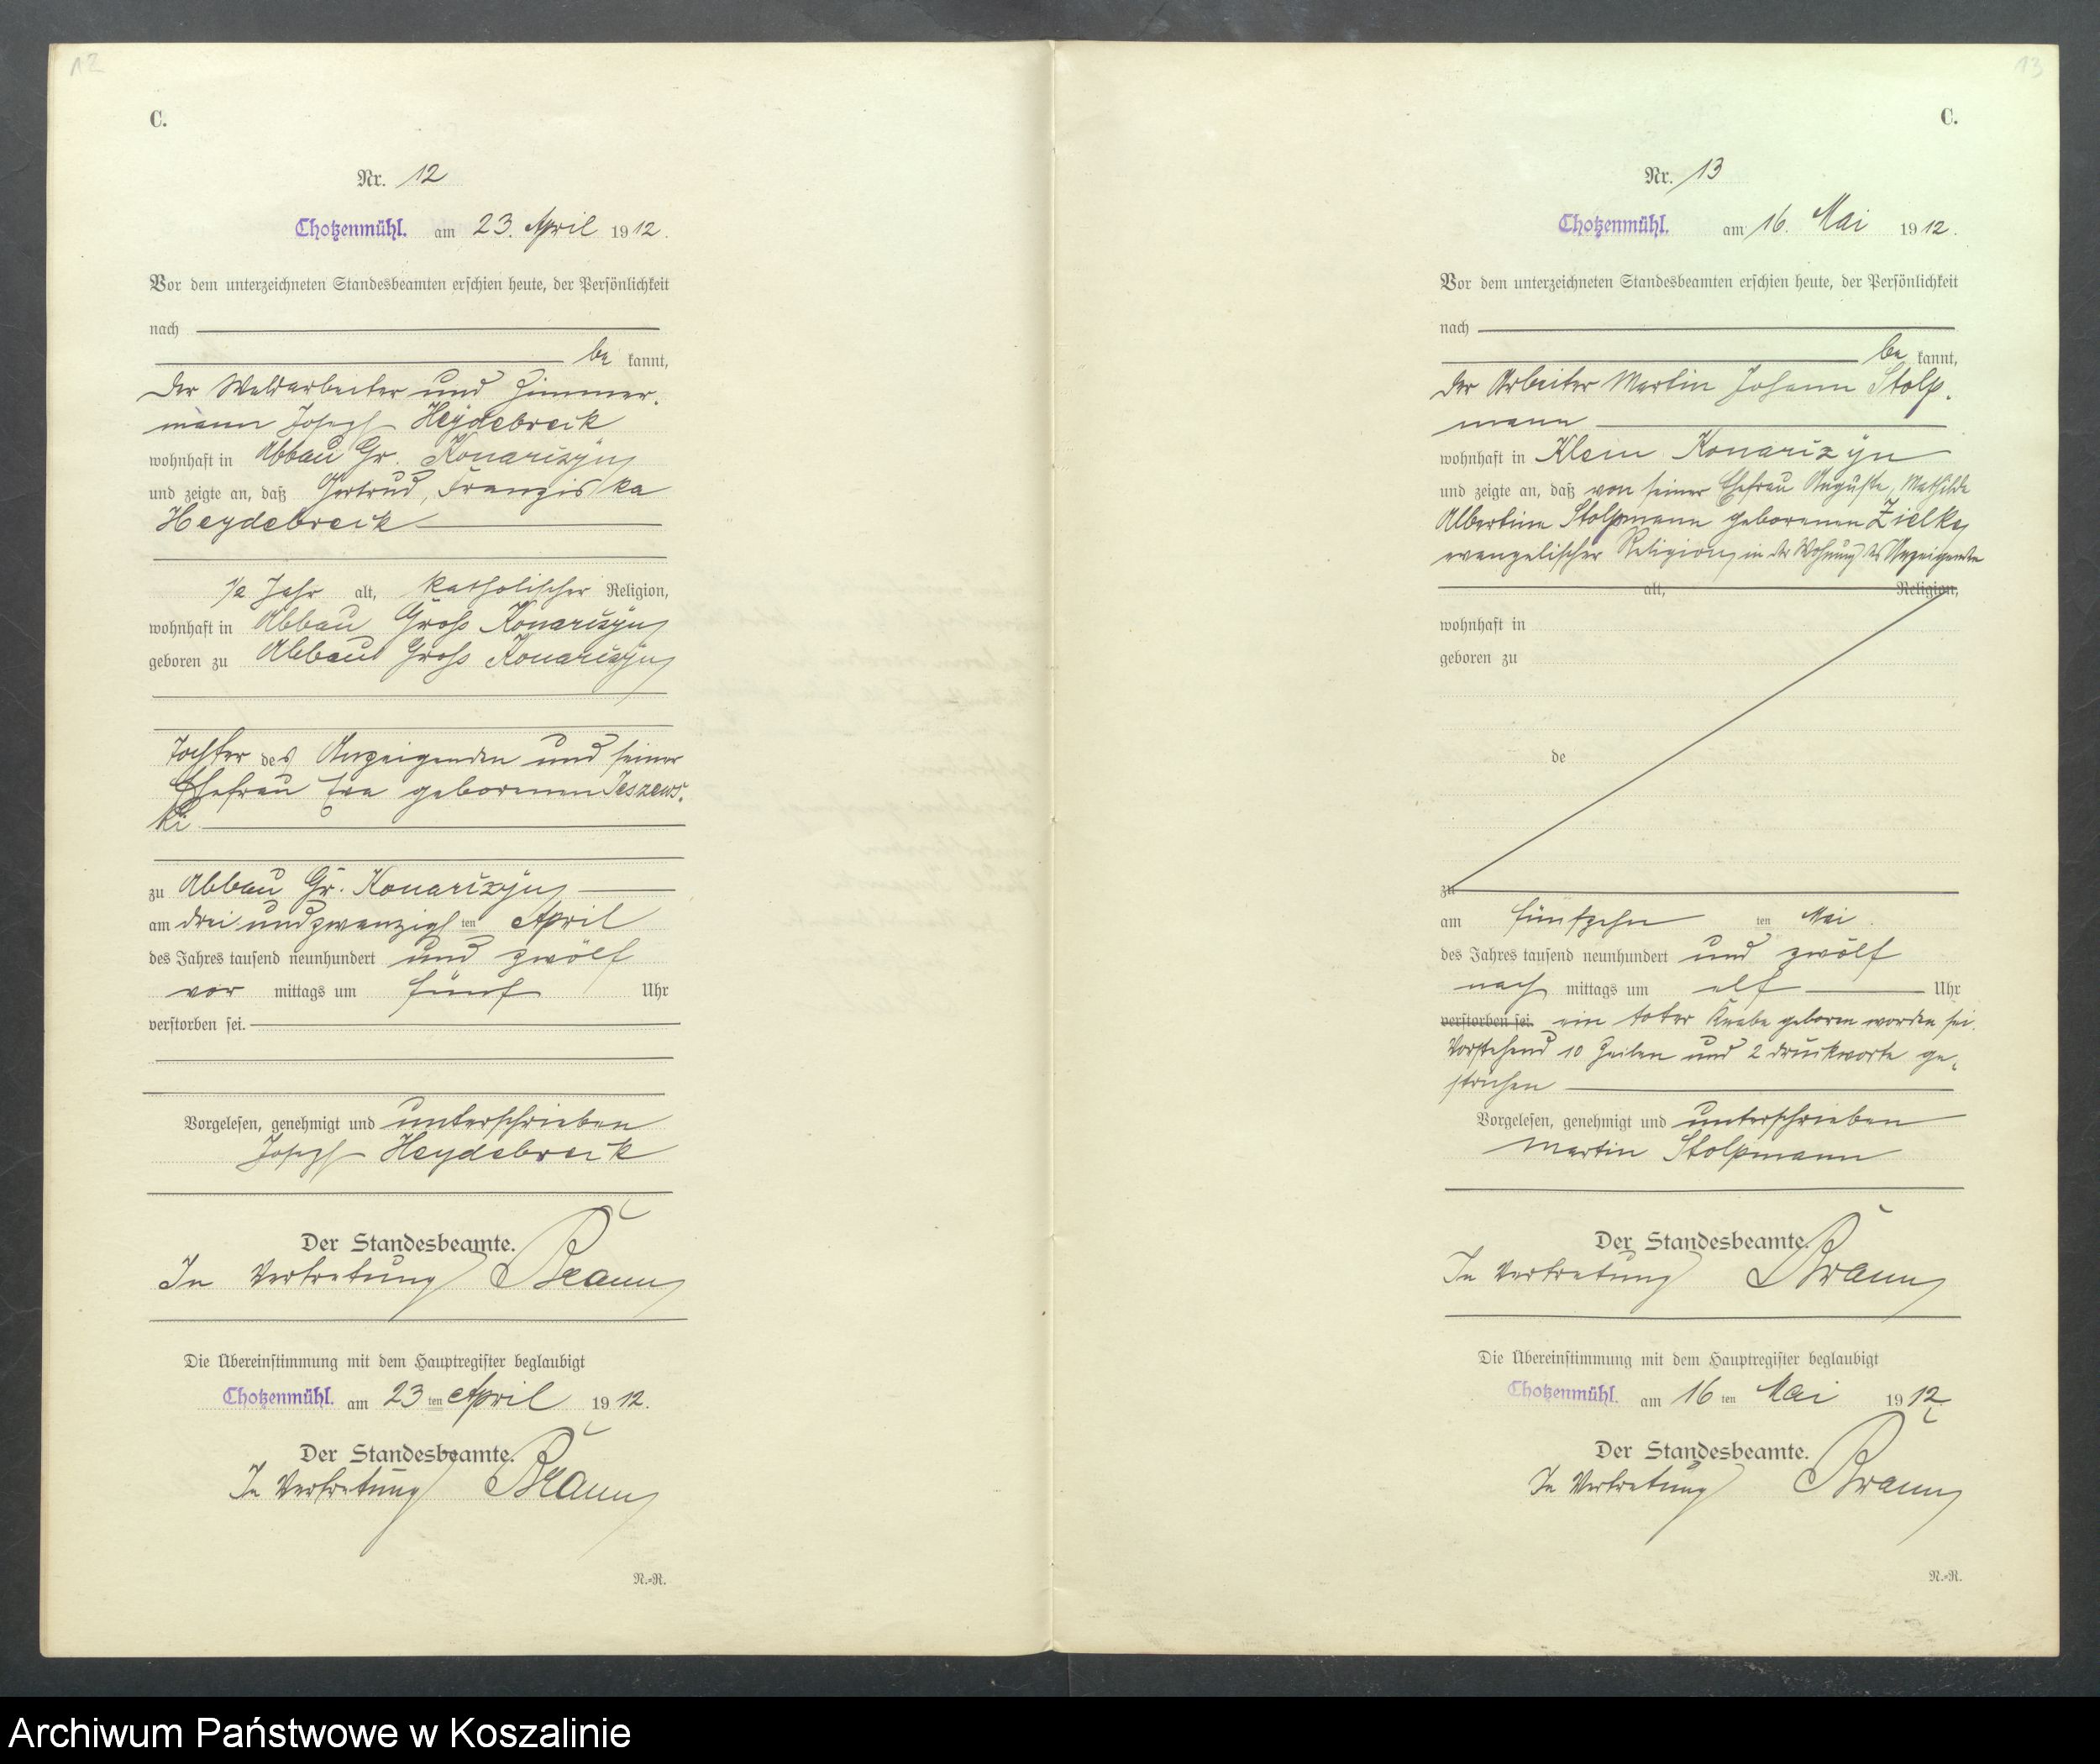 12
C.
Nr. 12
Chotzenmühl. am 23. April 1912.
Vor dem unterzeichneten Standesbeamten erschien heute, der Persönlichkeit
nach
be kannt,
der Waldarbeiter und Zimmer-
mann Joseph Heydebreck
wohnhaft in Abbau Gr. Konarczyn
und zeigte an, daß Gertrud, Franziska
Heydebreck
1/2 Jahr alt, katholischer Religion,
wohnhaft in Abbau Gross Konarczyn
geboren zu Abbau Gross Konarczyn
Tochter des Anzeigenden und seiner
Ehefrau Eva geborenen Jeszews-
ki
zu Abbau Gr. Konarczyn
am drei und zwanzigsten April
des Jahres tausend neunhundert und zwölf
vor mittags um fünf Uhr
verstorben sei.
Vorgelesen, genehmigt und unterschrieben
Joseph Heydebreck
Der Standesbeamte.
In Vertretung Braun
Die Übereinstimmung mit dem Hauptregister beglaubigt
Chotzenmühl. am 23 ten April 1912.
Der Standesbeamte.
In Vertretung Braun
N.-R.
13
C.
Nr. 13
Chotzenmühl. am 16. Mai 1912.
Vor dem unterzeichneten Standesbeamten erschien heute, der Persönlichkeit
nach
be kannt,
der Arbeiter Martin Johann Stolp-
mann
wohnhaft in Klein Konarczyn
und zeigte an, daß von seiner Ehefrau Auguste, Mathilde
Albertine Stolpmann geborenen Zielke
evangelischer Religion, in der Wohnung des Anzeigenden
alt, Religion,
wohnhaft in
geboren zu
de
zu
am fünfzehn ten Mai
des Jahres tausend neunhundert und zwölf
nach mittags um elf Uhr
verstorben sei. ein toter Knabe geboren worden sei.
Vorstehend 10 Zeilen und 2 Druckworte ge-
strichen
Vorgelesen, genehmigt und unterschrieben
Martin Stolpmann
Der Standesbeamte.
In Vertretung Braun
Die Übereinstimmung mit dem Hauptregister beglaubigt
Chotzenmühl. am 16 ten Mai 1912
Der Standesbeamte.
In Vertretung Braun
N.-R.
Archiwum Państwowe w Koszalinie